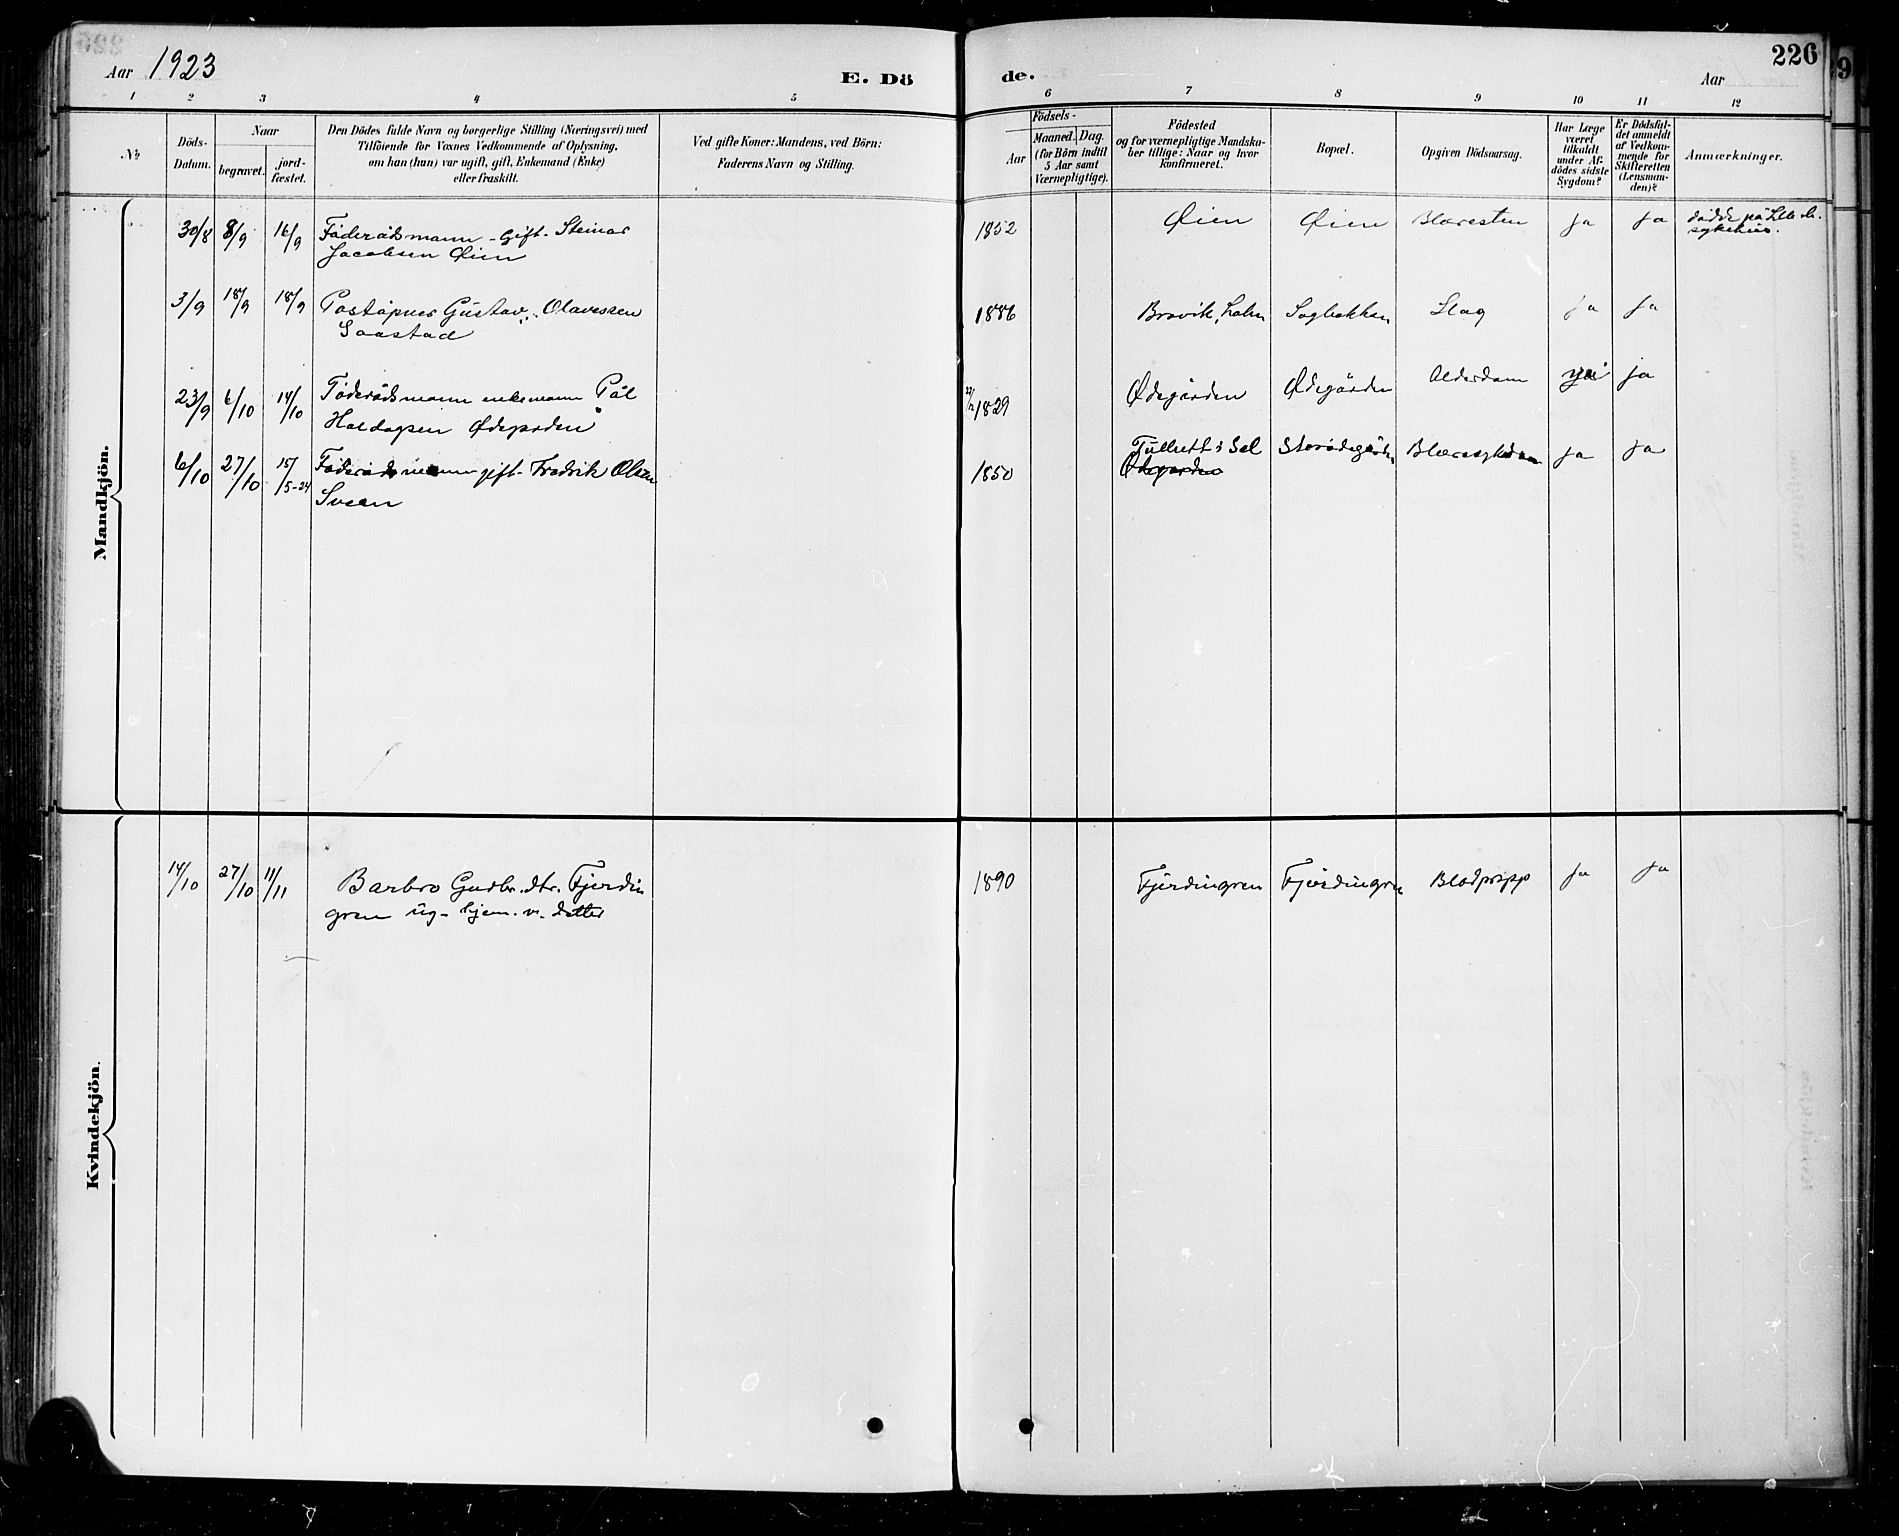 Aar 1923
E. Dö
de.
Aar
226
1 2 3 4 5 6 7 8 9 10 11 12
№
Döds-
Datum.
Naar
begravet.
jord-
fæstet.
Den Dödes fulde Navn og borgerlige Stilling (Næringsvei) med
Tilföiende for Voxnes Vedkommende af Oplysning,
om han (hun) var ugift, gift, Enkemand (Enke)
eller fraskilt.
Ved gifte Koner: Mandens, ved Börn:
Faderens Navn og Stilling.
Födsels-
Aar
Maaned.
Dag.
(for Börn indtil
5 Aar samt
Værnepligtige).
Födested
og for værnepligtige Mandska-
ber tillige: Naar og hvor
konfirmeret.
Bopæl.
Opgiven Dödsaarsag.
Har Læge
været
tilkaldt
under Af-
dödes sidste
Sygdom?
Er Dödsfal-
det anmeldt
af Vedkom-
mende for
Skifteretten
(Lensman-
den)?
Anmærkninger.
Mandkjön.
30/8 8/9 16/9 Föderådsmann - gift - Steinar
Jacobsen Øien
1852 Øien Øien Blæresten ja ja dödde på Lilleh.
sykehus.
3/9 18/9 18/9 Poståpner Gustav Olavessen
Saastad
1886 Bravik, Sagbakken Slag ja ja
23/9 6/10 14/10 Föderådsmann enkemann Pål
Haldogsen Ødegården
1829 Ødegården Ødegården Alderdom ja ja
6/10 27/10 15/5-24 Föderådsmann gift - Fredrik Olsen
Sveen
1850 Sel
Ødegarden
Storödegården Blæresykdom ja ja
Kvindekjön.
14/10 27/10 11/11 Barbro Gudbr. dtr. Fjerdin
gren ug - hjem. v. datter
1890 Fjerdingren Fjerdingren Blodpropp ja ja